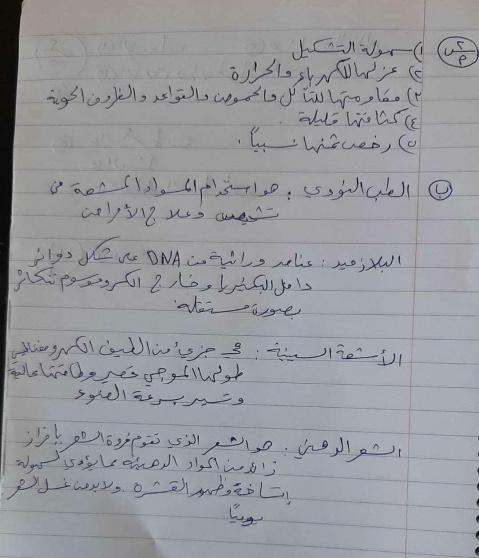 س٢/٢ ١) سهولة التشكيل
٢) عزلها للكهرباء والحرارة
٣) مقاومتها للتآكل والحموض والقواعد والظروف الجوية
٤) كثافتها قليلة.
٥) رخص ثمنها نسبياً.
ب) الطب النووي: هو استخدام المواد المشعة في
تشخيص وعلاج الأمراض
البلازميد: عناصر وراثية من DNA على شكل دوائر
داخل البكتيريا وخارج الكروموسوم تتكاثر
بصورة مستقلة.
الأشعة السينية: هي جزء من الطيف الكهرومغناطيسي
طولها الموجي قصير وطاقتها عالية
وتسير بسرعة الضوء
الشعر الدهني: هو الشعر الذي تقوم فروة الشعر بإفراز
زائد من المواد الدهنية مما يؤدي لسهولة
إتساخة وظهور القشرة ولابد من غسل الشعر
يومياً